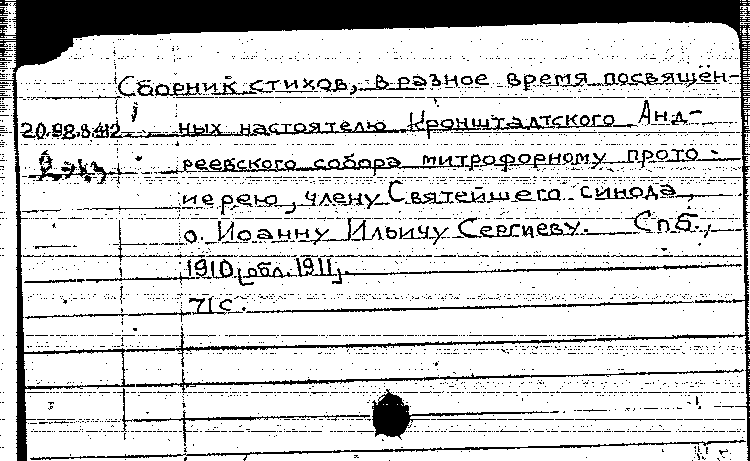 Сборник стихов, в разное время посвящен-
20.98.8.412 ных настоятелю Кронштадтского Анд-
реевского собора митрофорному прото-
иерею, члену Святейшего синода,
о. Иоанну Ильичу Сергиеву. Спб.,
1910[обл. 1911].
71 с.